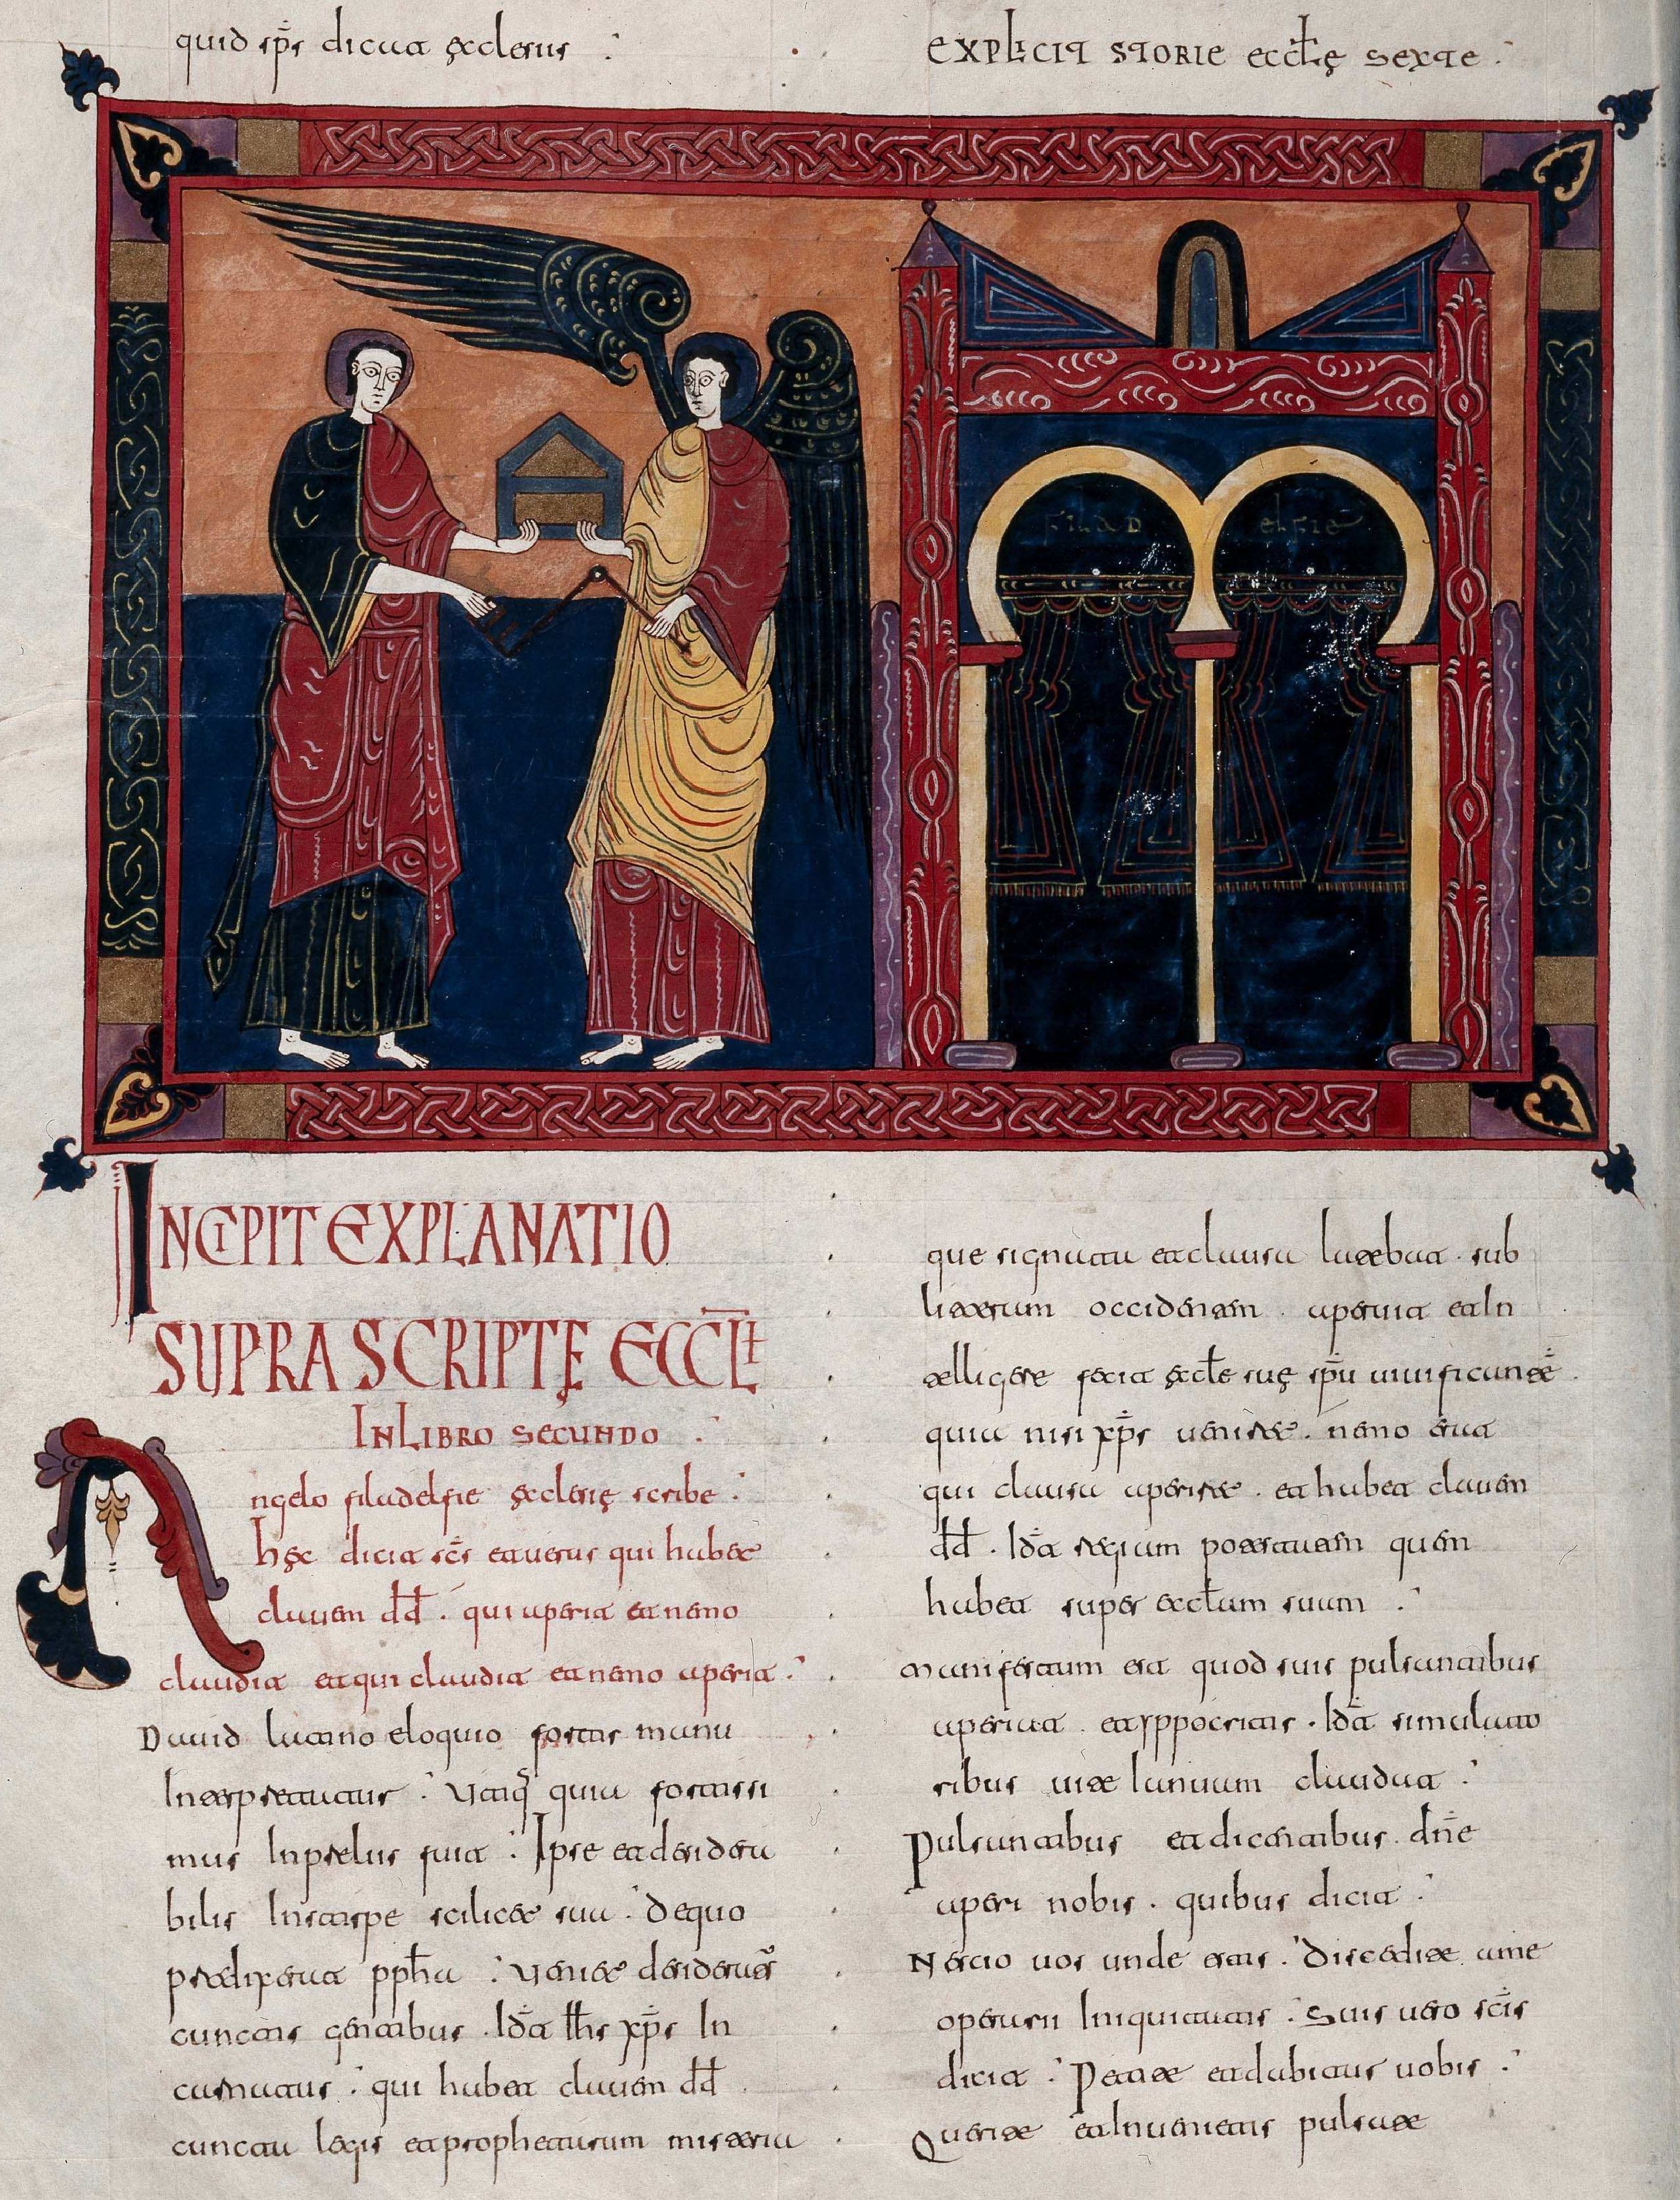 quid sp̅s dicat ęclesiis :
EXPLICIT STORIE eccl̅ę sexte :
filad elfie
INCIPIT EXPLANATIO
SUPRA SCRIPTĘ ECCL̅
IN LIBRO SECUNDO :
Angelo filadelfie ęclesię scribe :
hęc dicit sc̅s et uerus qui habet
clauem dd̅ . qui aperit et nemo
claudit et qui claudit et nemo aperit :
Dauid latino eloquio fortis manu
Interpretatur : Utiq quia fortissi
mus In prelus fuit : Ipse et desidera
bilis In stirpe scilicet sua . de quo
predixerat pph̅a : Ueniet desideratus
cunctis gentibus . Id̅t Ih̅s xp̅s In
carnatus : qui habet clauem dd̅ .
cuncta legis et prophetarum misteria
que signata et clausa latebat . sub
litterarum occidentem . aperuit et In
telligere fecit ęcl̅e suę sp̅u uiuificante .
quia nisi xp̅s ueniret . nemo erat
qui clausa aperiret . et habet clauem
dd̅ . Id̅t regiam potestatem quam
habet super eccl̅am suam :
Manifestum est quod suis pulsantibus
aperiat . et yppocritis . Id̅t simulato
ribus uite Ianuam claudat :
Pulsantibus et dicentibus . dn̅e
aperi nobis . quibus dicit :
Nescio uos unde estis . Discedite a me
operarii Iniquitatis : Suis uero sc̅is
dicit : Petite et dabitur uobis :
Querite et Inuenietis pulsate